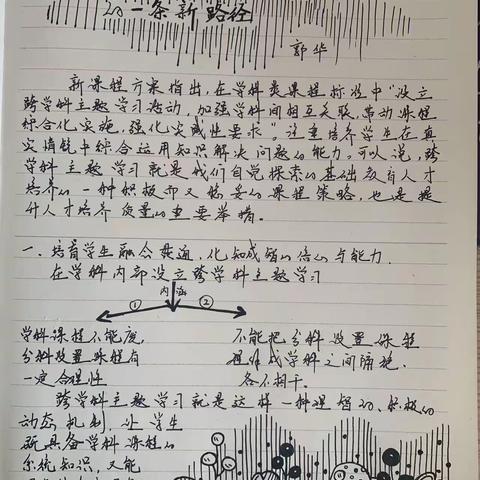 的一条新路径
郭华
新课程方案指出，在学科类课程标准中“设立
跨学科主题学习活动，加强学科间相互关联，带动课程
综合化实施，强化实践性要求”注重培养学生在真
实情境中综合运用知识解决问题的能力。可以说，跨
学科主题学习就是我们自觉探索的基础教育人才
培养的一种积极而又稳妥的课程策略，也是提
升人才培养质量的重要举措。
一、培育学生融会贯通，化知成智的信心与能力
在学科内部设立跨学科主题学习
内涵
① ②
学科课程不能废，
分科设置课程有
一定合理性
不能把分科设置课程
理解成学科之间隔绝
各不相干。
跨学科主题学习就是这样一种理智的、积极的
动态机制，让学生
既具备学科课程的
系统知识，又能